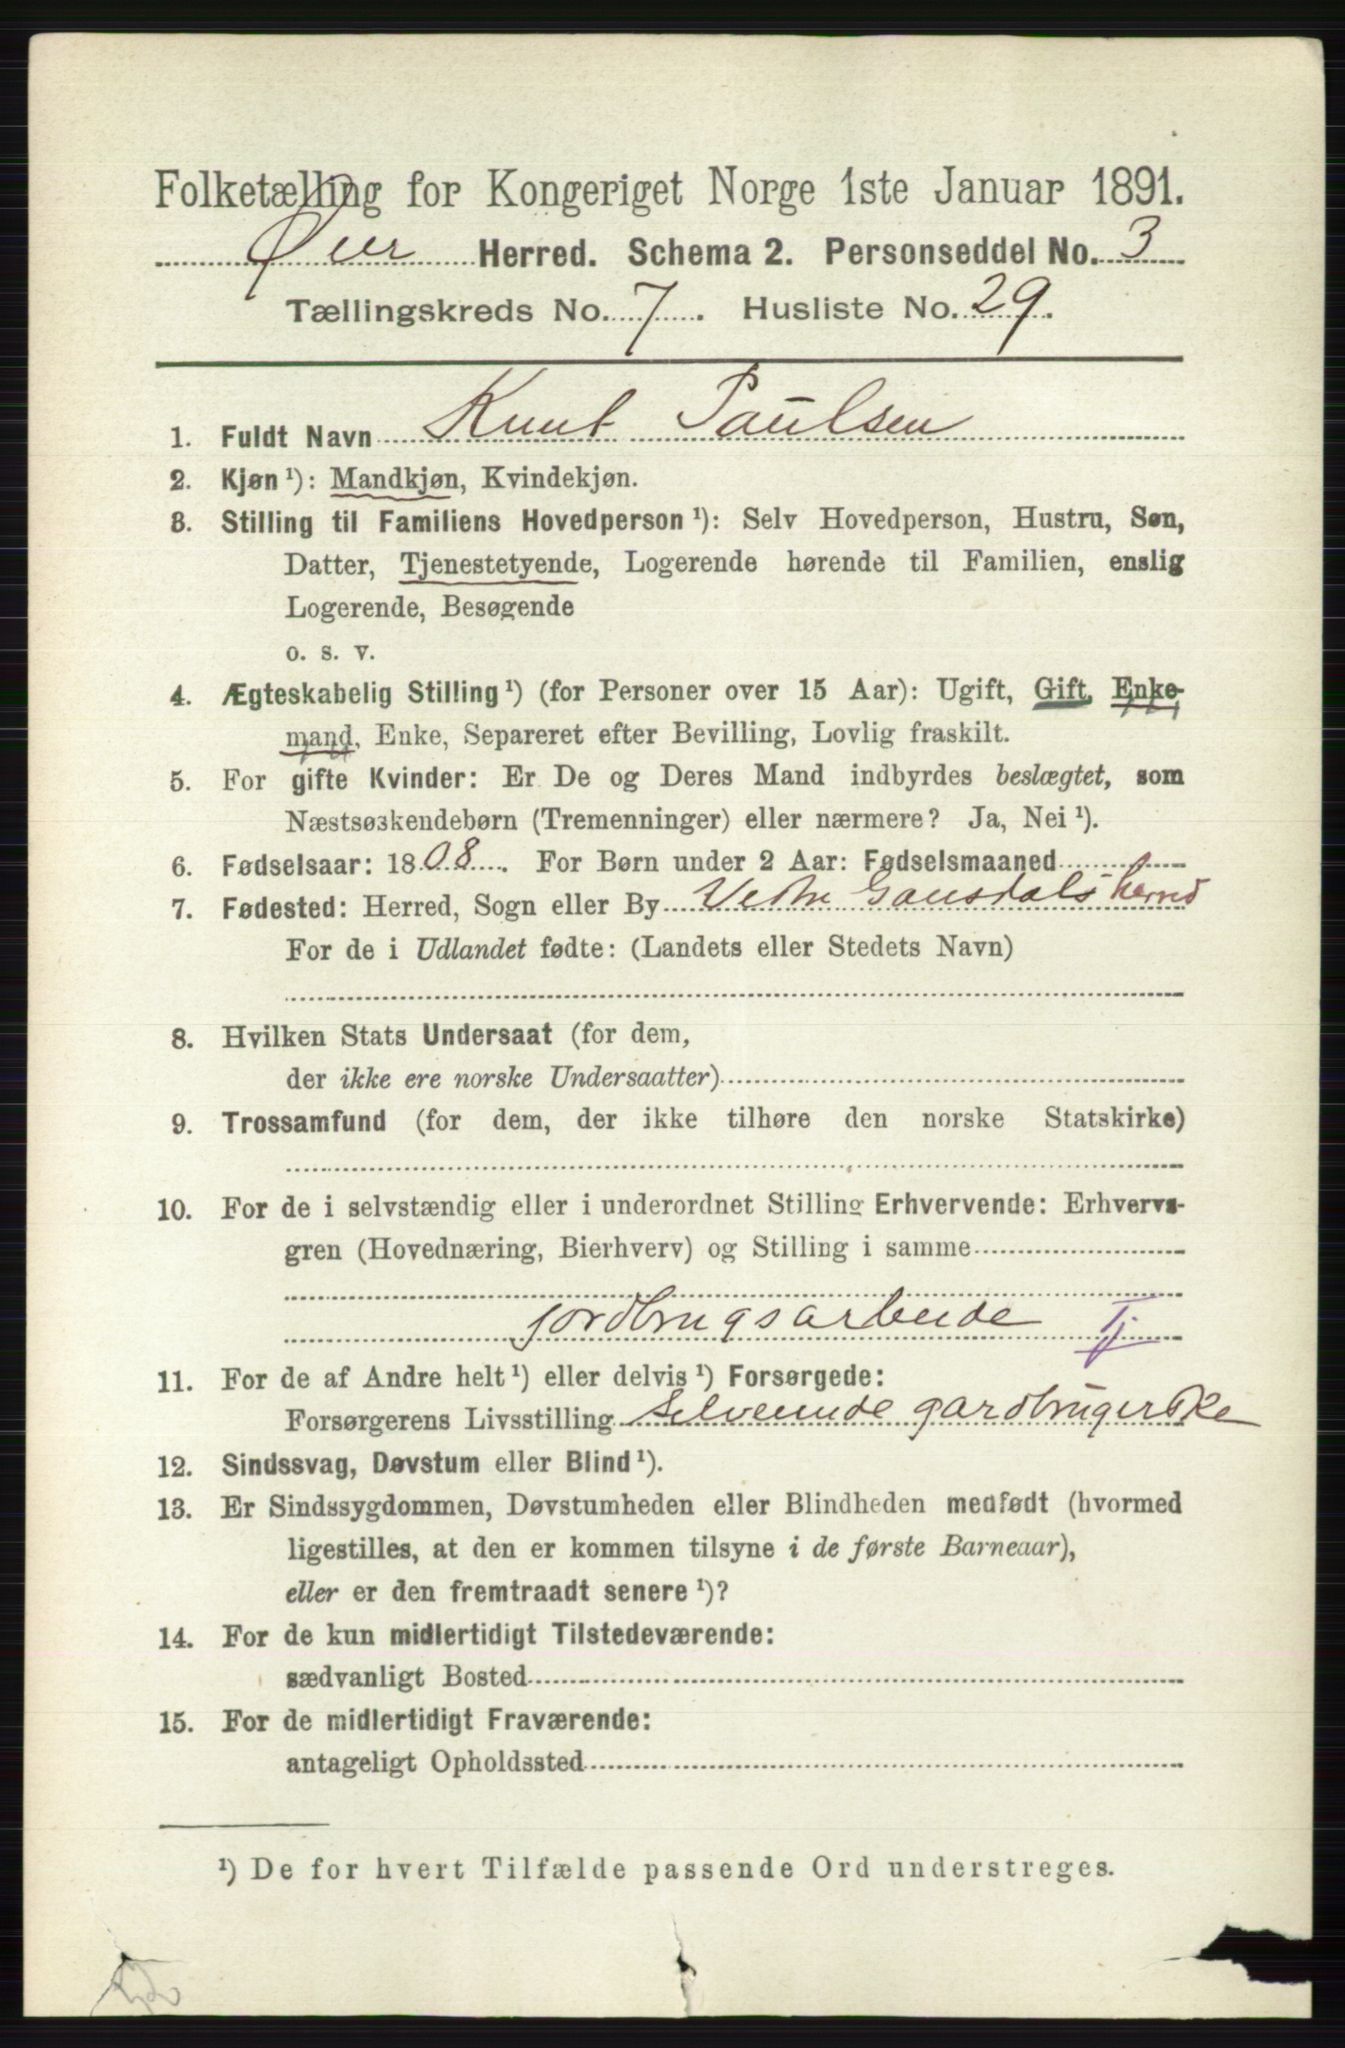 Folketælling for Kongeriget Norge 1ste Januar 1891.
Øier Herred. Schema 2. Personseddel No. 3
Tællingskreds No. 7. Husliste No. 29.
1. Fuldt Navn Knut Paulsen
2. Kjøn ¹): Mandkjøn, Kvindekjøn.
3. Stilling til Familiens Hovedperson ¹): Selv Hovedperson, Hustru, Søn,
Datter, Tjenestetyende, Logerende hørende til Familien, enslig
Logerende, Besøgende
o. s. v.
4. Ægteskabelig Stilling ¹) (for Personer over 15 Aar): Ugift, Gift, Enke-
mand, Enke, Separeret efter Bevilling, Lovlig fraskilt.
5. For gifte Kvinder: Er De og Deres Mand indbyrdes beslægtet, som
Næstsøskendebørn (Tremenninger) eller nærmere? Ja, Nei ¹).
6. Fødselsaar: 1808. For Børn under 2 Aar: Fødselsmaaned
7. Fødested: Herred, Sogn eller By Vestre Gausdals herred
For de i Udlandet fødte: (Landets eller Stedets Navn)
8. Hvilken Stats Undersaat (for dem,
der ikke ere norske Undersaatter)
9. Trossamfund (for dem, der ikke tilhøre den norske Statskirke)
10. For de i selvstændig eller i underordnet Stilling Erhvervende: Erhvervs-
gren (Hovednæring, Bierhverv) og Stilling i samme
jordbrugsarbeide Tj
11. For de af Andre helt ¹) eller delvis ¹) Forsørgede:
Forsørgerens Livsstilling Selveiende gardbrugerske
12. Sindssvag, Døvstum eller Blind ¹).
13. Er Sindssygdommen, Døvstumheden eller Blindheden medfødt (hvormed
ligestilles, at den er kommen tilsyne i de første Barneaar),
eller er den fremtraadt senere ¹)?
14. For de kun midlertidigt Tilstedeværende:
sædvanligt Bosted
15. For de midlertidigt Fraværende:
antageligt Opholdssted
¹) De for hvert Tilfælde passende Ord understreges.